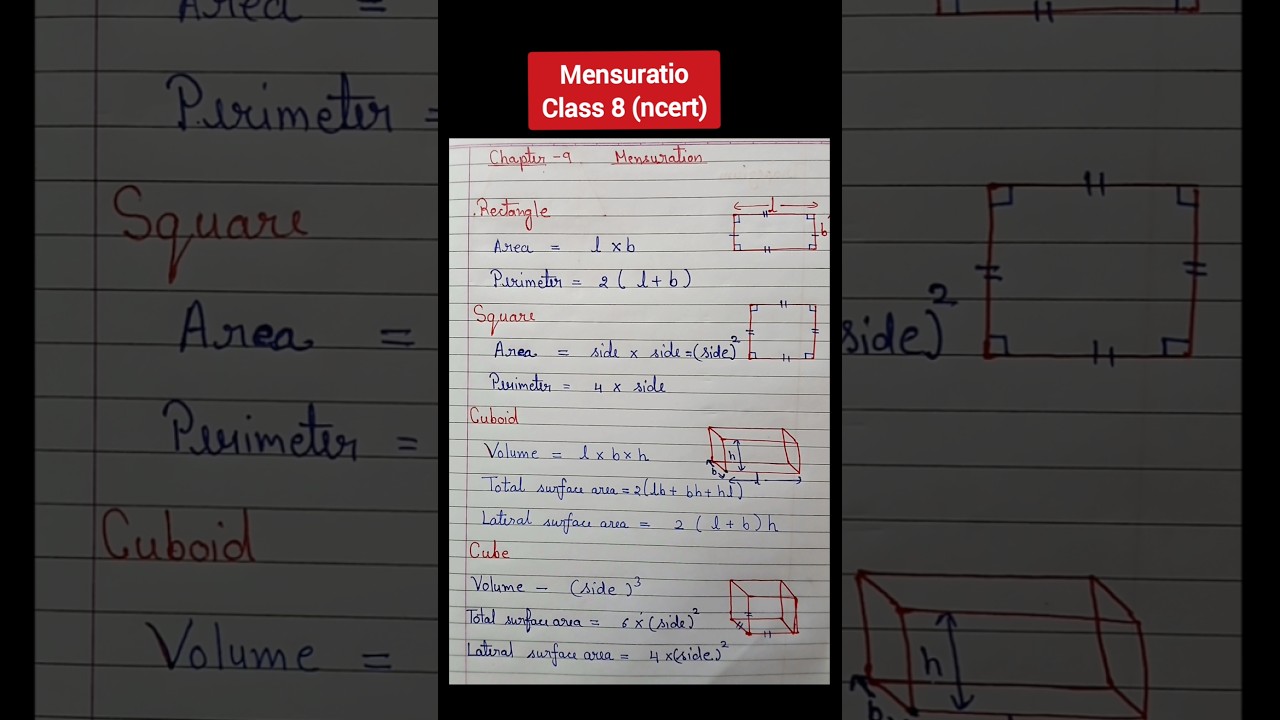 Mensuratio
Class 8 (ncert)
Chapter-9 Mensuration
Rectangle
Area = l × b
Perimeter = 2 ( l + b )
l
b
Square
Area = side × side = (side)²
Perimeter = 4 × side
Cuboid
Volume = l × b × h
Total surface area = 2(lb + bh + hl)
Lateral surface area = 2 ( l + b ) h
h
b
l
Cube
Volume - (side)³
Total surface area = 6 × (side)²
Lateral surface area = 4 × (side)²
Area =
Perimeter =
Square
Area =
Perimeter =
Cuboid
Volume =
side)²
h
b